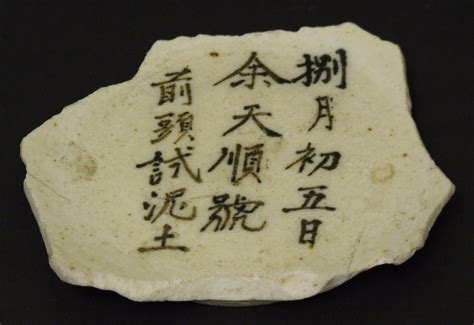 捌月初五日
余天順號
前頭試泥土